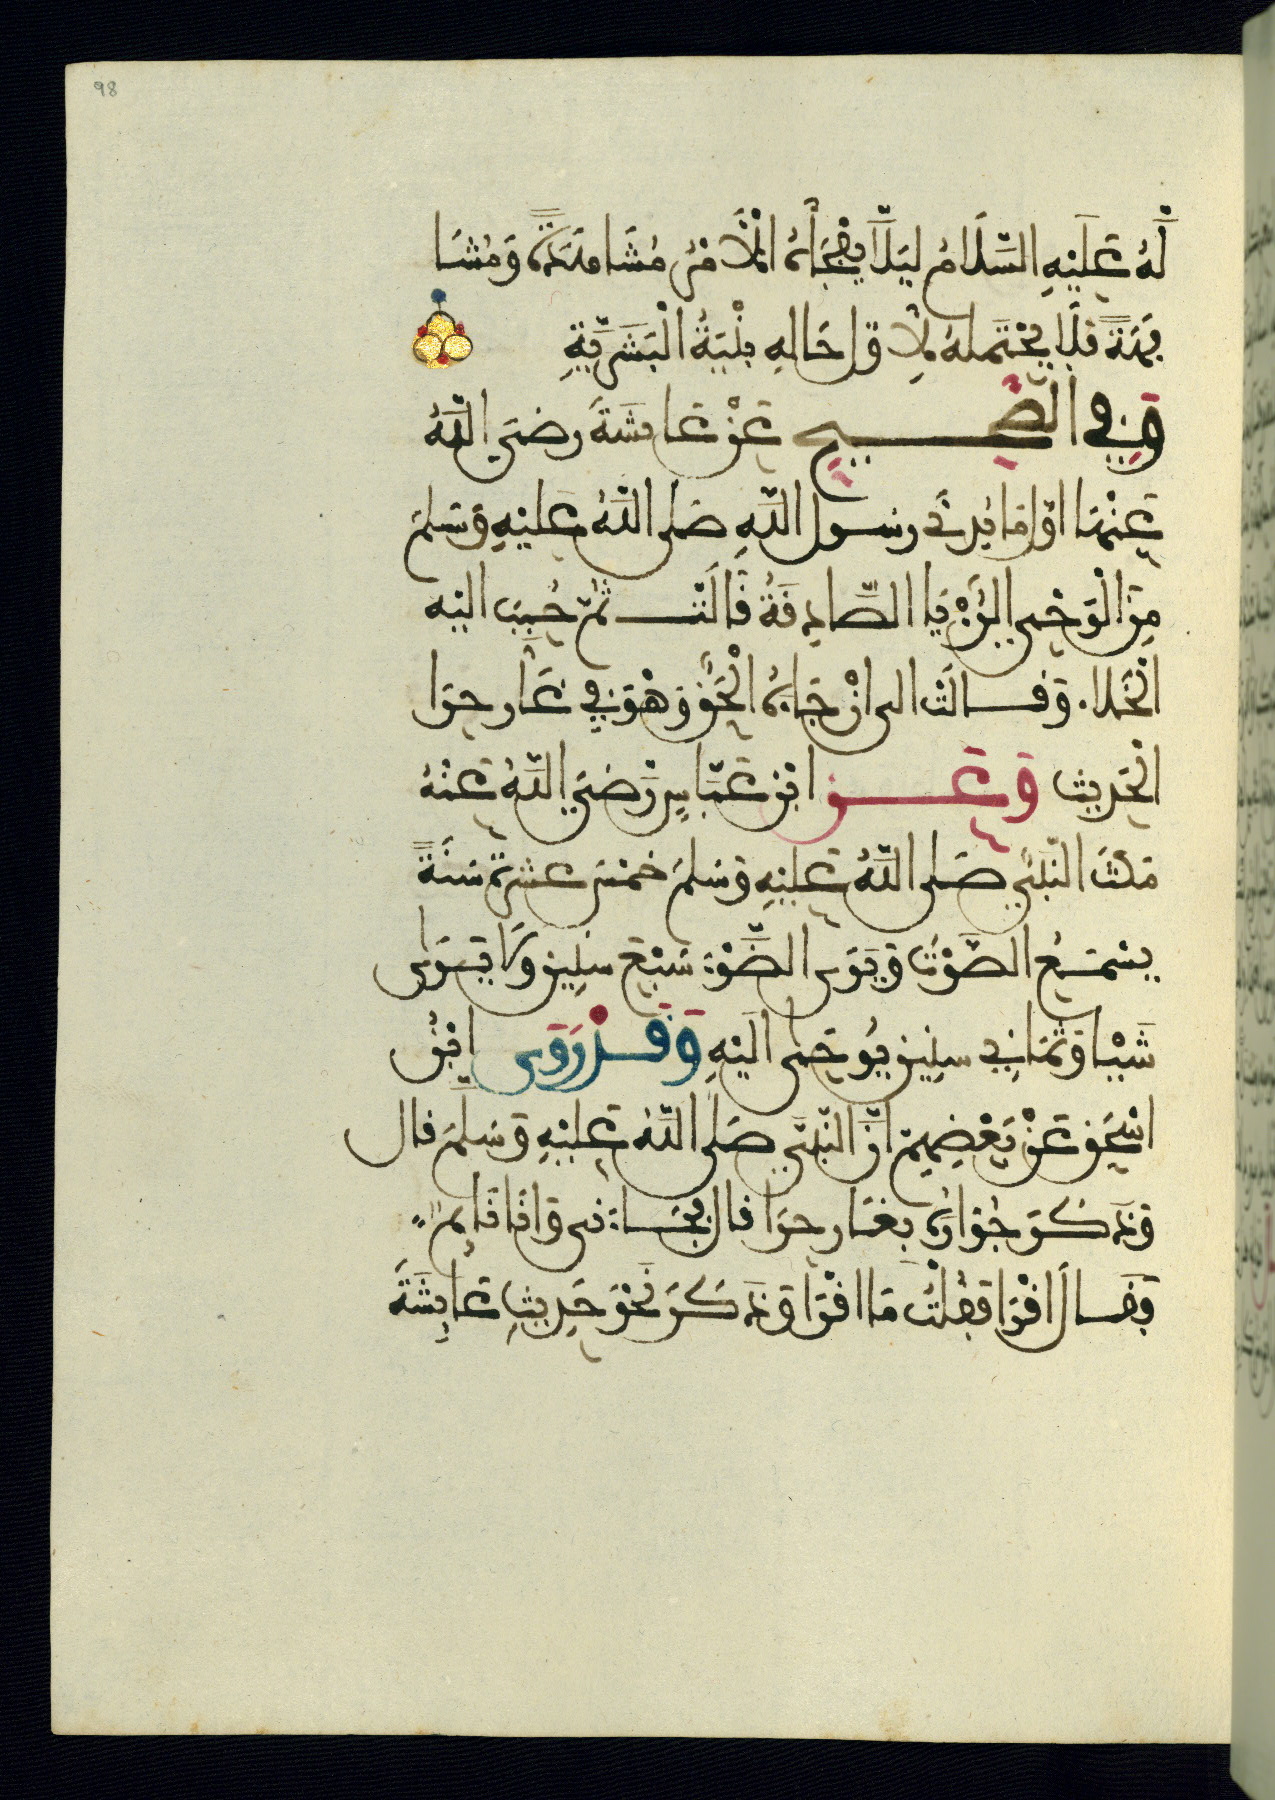 98
لَّهُ عَلَيْهِ السَّلَامُ لِيَلَّا يَفْجَأَهُ الْأَمْرُ مُشَاهَدَةً وَمُشَا
فَهَةً فَلَا يَحْتَمِلُهُ لِأَوَّلِ حَالِهِ بِنْيَةُ الْبَشَرِيَّةِ
وَفِي الصَّحِيحِ عَنْ عَايِشَةَ رَضِيَ اللَّهُ
عَنْهَا اوَّلُ مَا بُدِئَ رسول اللَّهِ صَلى اللَّهُ عَلَيْهِ وَسَلمَ
مِنَ الْوَحْيِ الرُّؤْيَا الصَّادِقَةُ قَالَتْ ثُمَّ حُبِّبَ اليْهِ
الْخَلا. وَقَالَتْ الى انْ جَاءَهُ الْحَقُّ وَهْوَ فِي غَارِ حِرَا
الْحَدِيث وَعَن ابْنِ عَبَّاسٍ رَّضِيَ اللَّهُ عَنْهُ
مَكَثَ النَّبِيُّ صَلى اللَّهُ عَلَيْهِ وَسَلمَ خمْسَ عَشرَةَ سَنَةً
يسْمَعُ الصَّوْتَ وَيَرَى الضَّوْءَ سَبْعَ سِنِينَ وَلَا يَرَى
شَيْئا وَثَمَانِيَ سِنِينَ يُوحَى الَيْهِ وَقَدْ رَوَى ابْنُ
اسْحَقَ عَنْ بَعْضِهِمْ انَّ النَّبِيَّ صَلى اللَّهُ عَلَيْهِ وَسَلَّمَ قال
وَذَكَرَ جُوَارَهُ بِغَارِ حِرَا قال فَجَاءَنِى وَانَا نَايِمٌ
فَقَالَ اقْرَا فَقُلْتُ مَا اقْرَا وَذَكَرَ نَحْوَ حَدِيثِ عَايِشَةَ